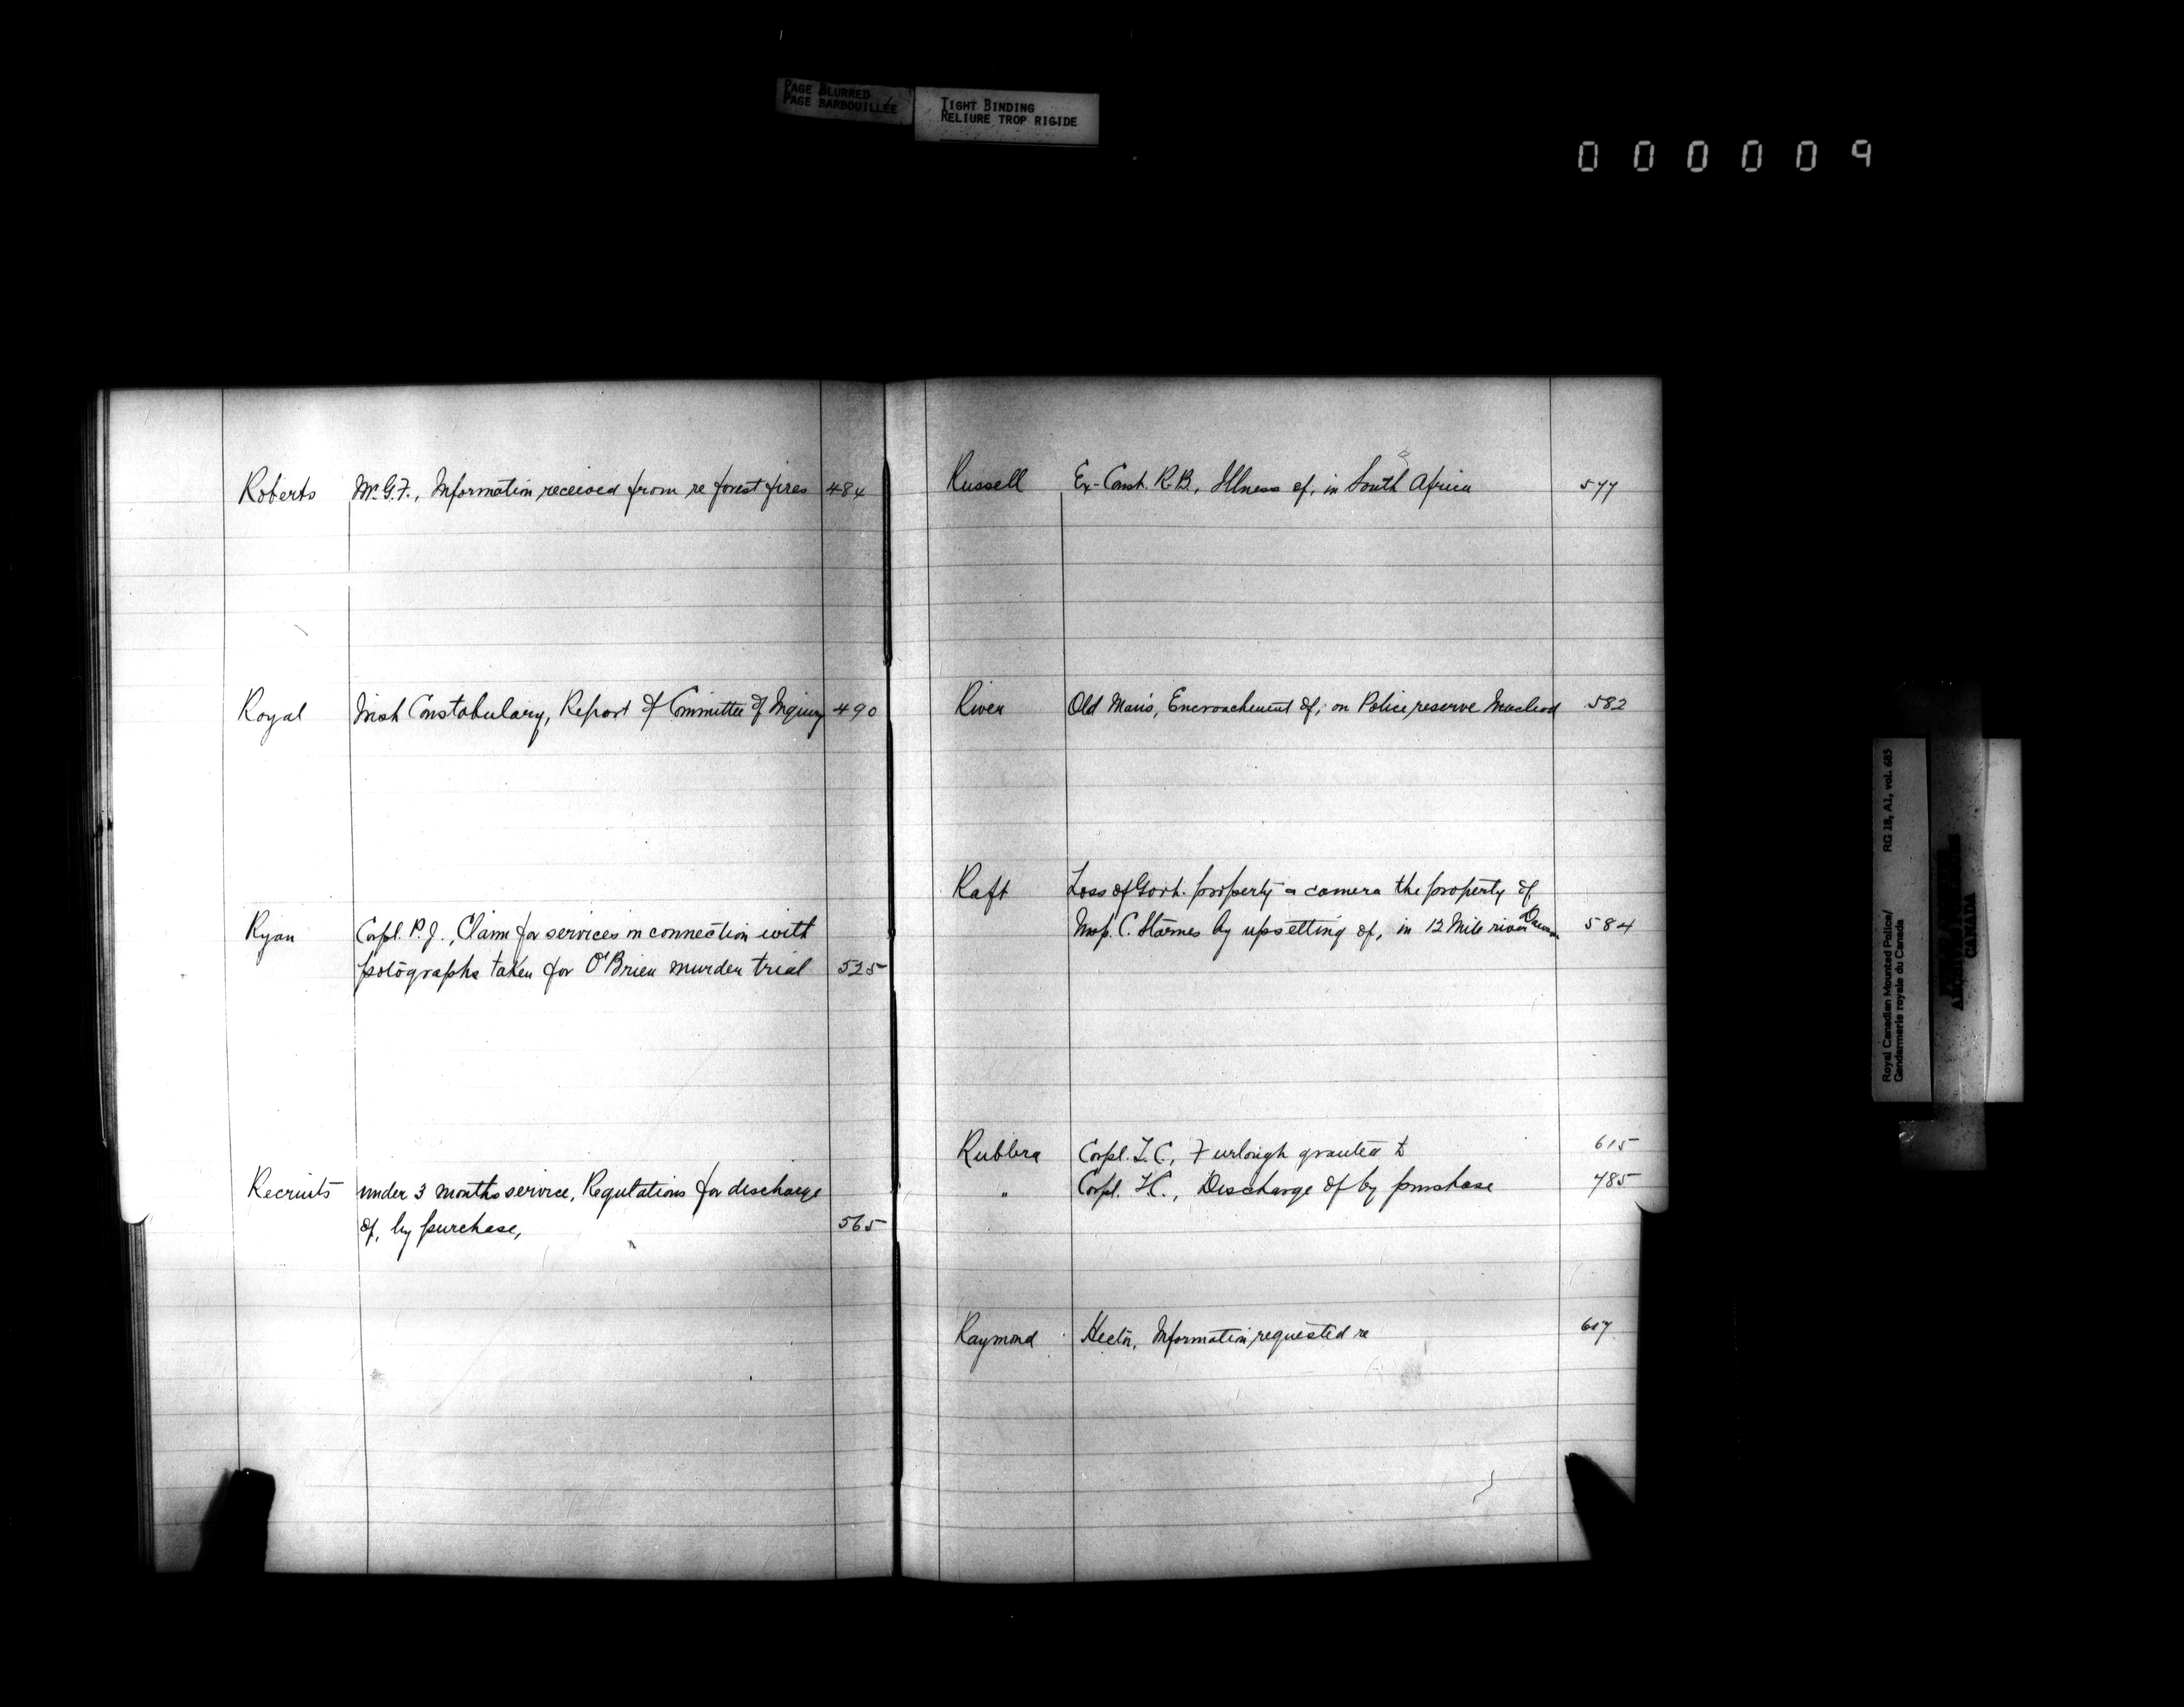 PAGE BLURRED
PAGE BARBOUILLÉE
TIGHT BINDING
RELIURE TROP RIGIDE
000009
Roberts Mr. G.F., Information received from re forest fires 484
Royal Irish Constabulary, Report of Committee of Inquiry 490
Ryan Corpl. P.J., Claim for services in connection with
potographs taken for O'Brien murder trial 525
Recruits under 3 months service, Regulations for discharge
of, by purchase, 565
Russell Ex-Const. R.B., Illness of, in South Africa 577
River Old Man's, Encroachment of, on Police reserve Macleod 582
Raft Loss of Govt. property & camera the property of
Insp. C. Starnes by upsetting of, in 12 Mile river Dawson 584
Rubbra Corpl. T.C., Furlough granted to 615
" Corpl. T.C., Discharge of by purchase 785
Raymond Hector, Information requested re 617
Royal Canadian Mounted Police/
Gendarmerie royale du Canada
RG 18, A1, vol. 685
CANADA